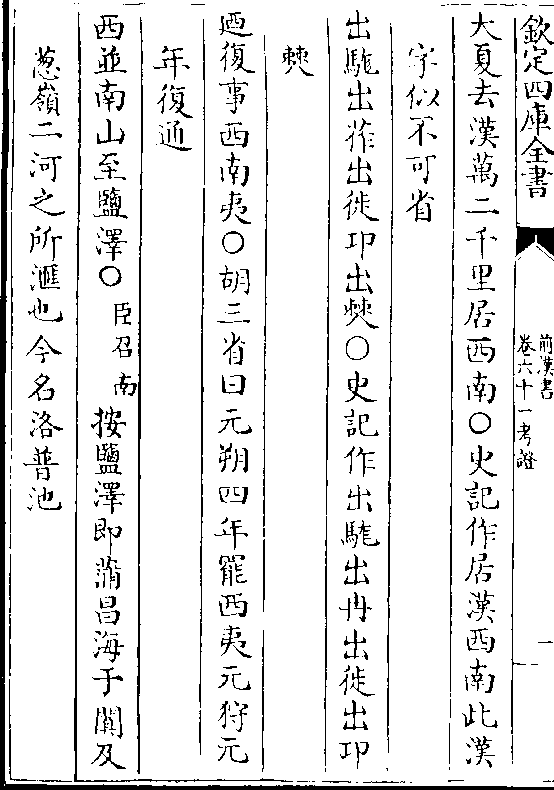 欽定四庫全書
前漢書
卷六十一考證
一
大夏去漢萬二千里居西南○史記作居漢西南此漢
字似不可省
出駹出莋出徙卭出僰○史記作出駹出冉出徙出卭
僰
迺復事西南夷○胡三省曰元朔四年罷西夷元狩元
年復通
西並南山至鹽澤○臣召南按鹽澤即蒲昌海于闐及
葱嶺二河之所滙也今名洛普池